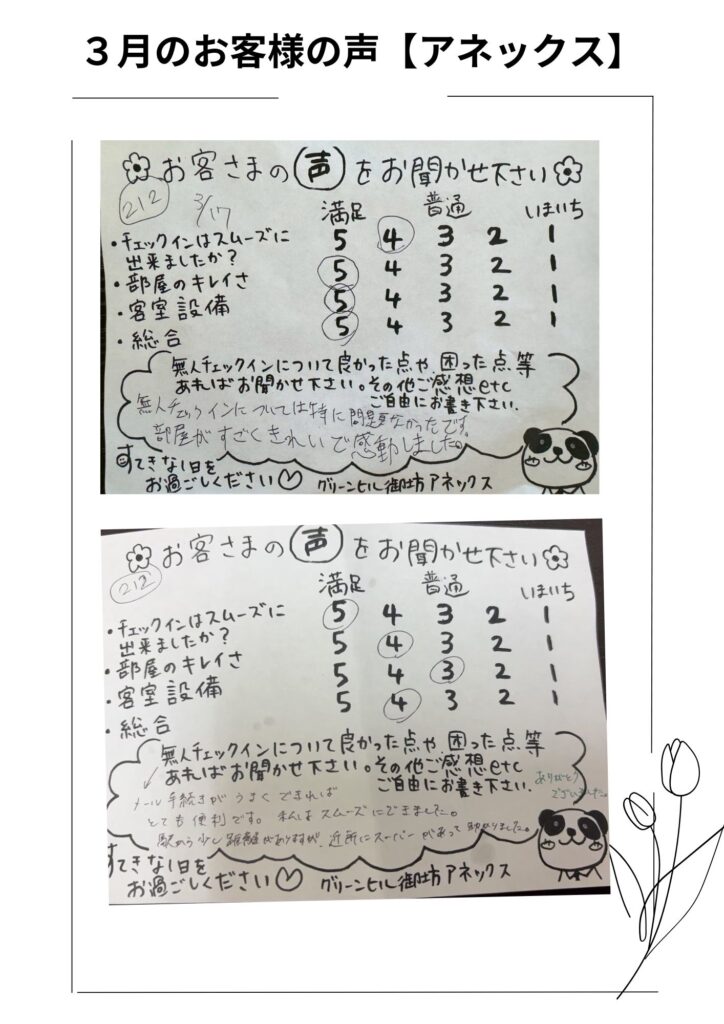 ３月のお客様の声【アネックス】
お客さまの声をお聞かせ下さい
212 3/17
満足 普通 いまいち
・チェックインはスムーズに 5 4 3 2 1
出来ましたか？
・部屋のキレイさ 5 4 3 2 1
・客室設備 5 4 3 2 1
・総合 5 4 3 2 1
無人チェックインについて良かった点や、困った点、等
あればお聞かせ下さい。その他ご感想etc
ご自由にお書き下さい.
無人チェックインについては特に問題なかったです。
部屋がすごくきれいで感動しました。
すてきな1日を
お過ごしください♡ グリーンヒル御坊アネックス
お客さまの声をお聞かせ下さい
212
満足 普通 いまいち
・チェックインはスムーズに 5 4 3 2 1
出来ましたか？
・部屋のキレイさ 5 4 3 2 1
・客室設備 5 4 3 2 1
・総合 5 4 3 2 1
無人チェックインについて良かった点や、困った点、等
あればお聞かせ下さい。その他ご感想etc
ご自由にお書き下さい.
ありがとう
ございました。
メール手続きがうまくできれば
とても便利です。私はスムーズにできました。
駅から少し距離がありますが、近所にスーパーがあって助かりました。
すてきな1日を
お過ごしください♡ グリーンヒル御坊アネックス